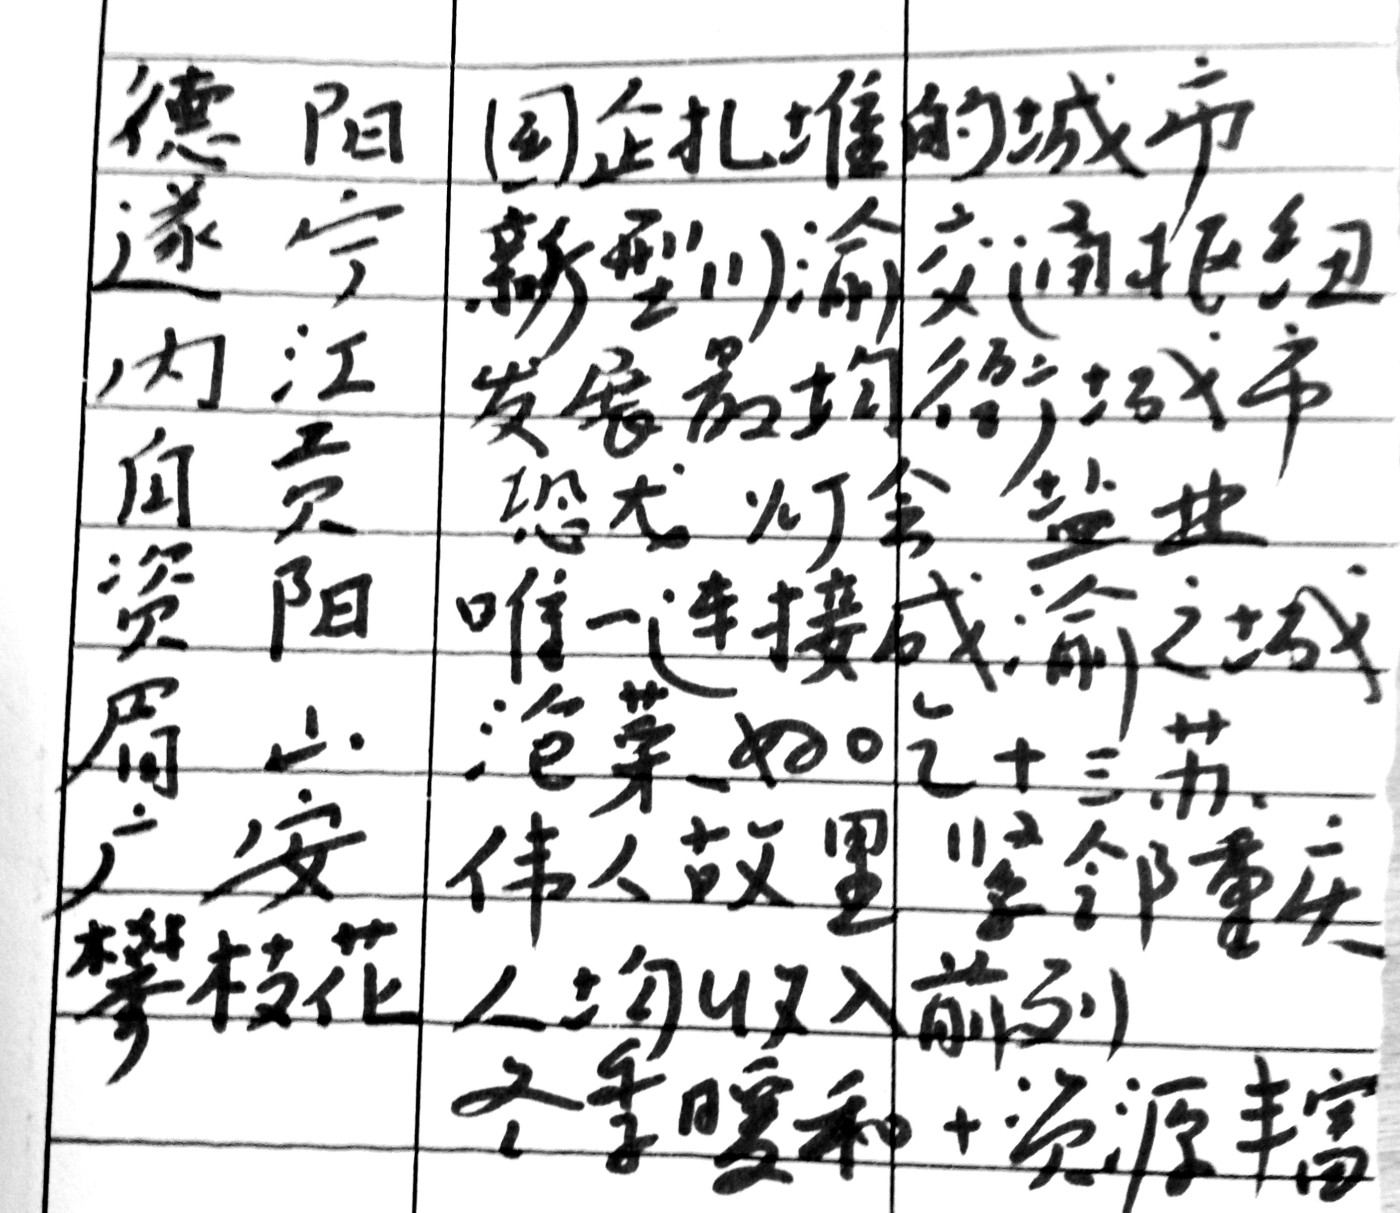 德阳 国企扎堆的城市
遂宁 新型川渝交通枢纽
内江 发展最均衡城市
自贡 恐龙 灯会 盐业
资阳 唯一连接成渝之城
眉山 泡菜 好吃+三苏
广安 伟人故里 紧邻重庆
攀枝花 人均收入前列
冬季暖和+资源丰富